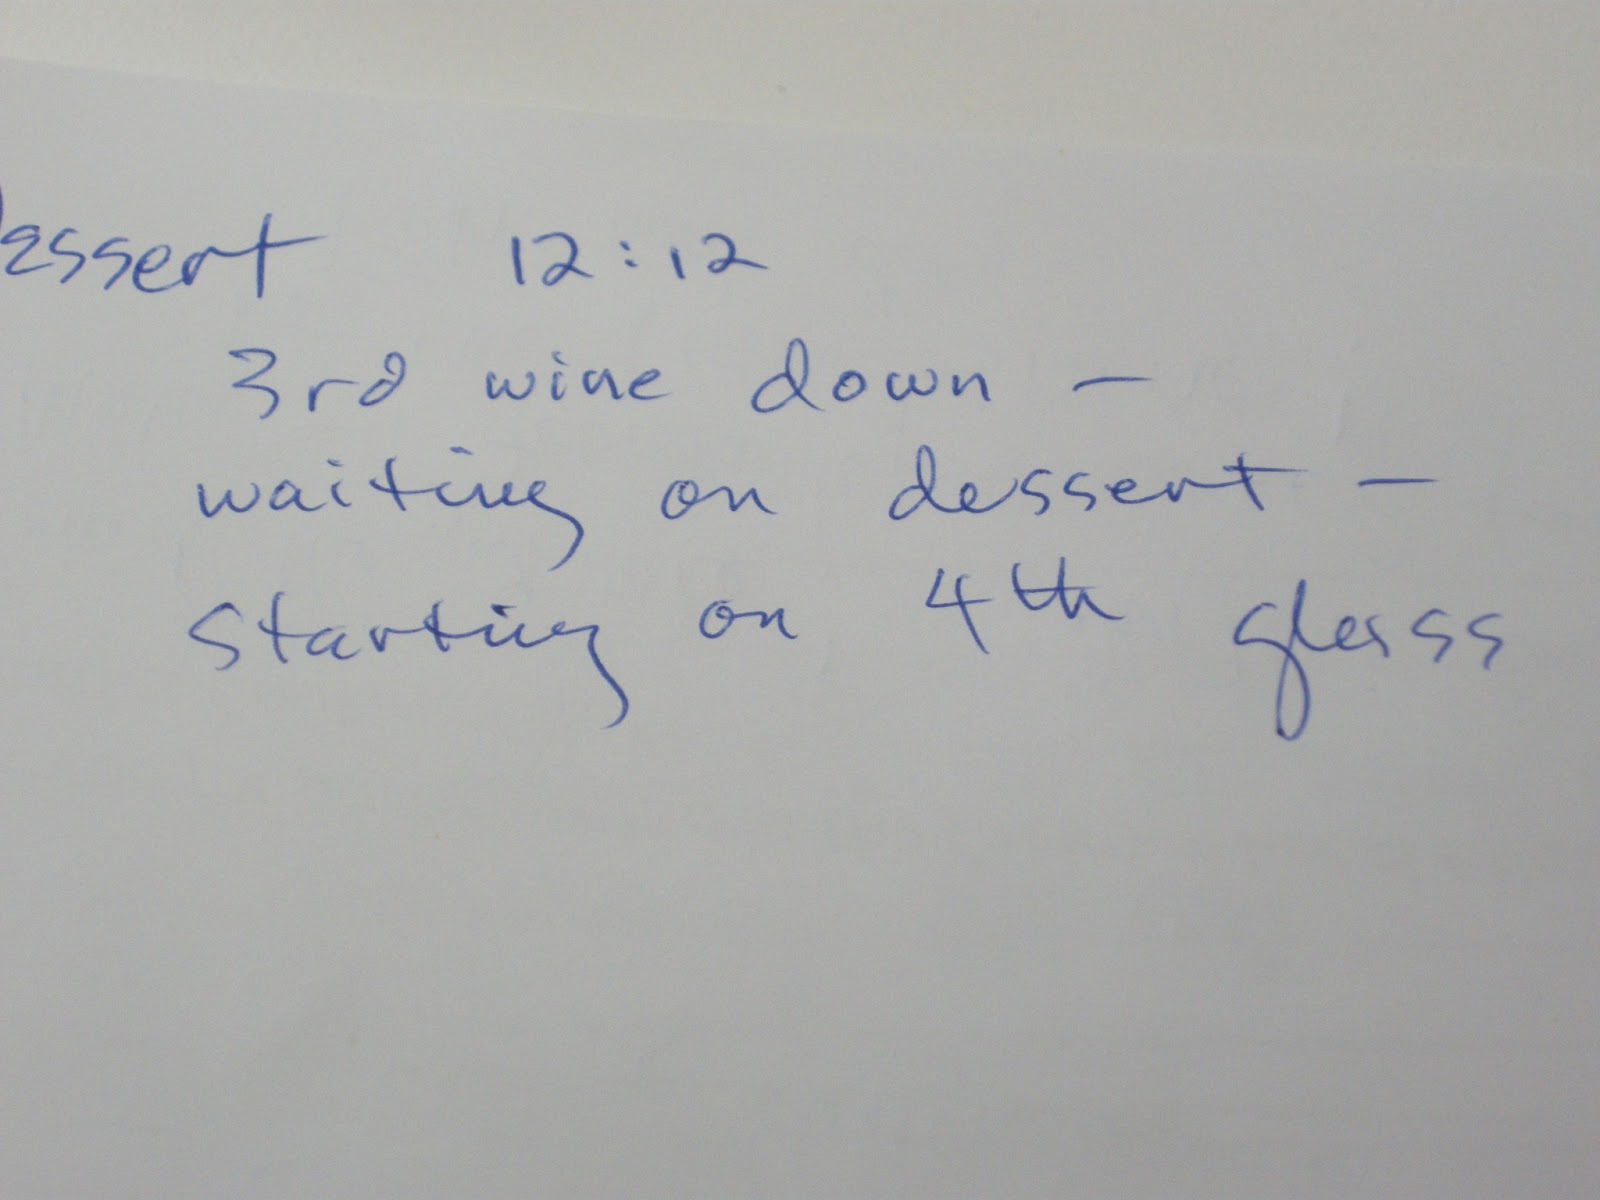 Dessert 12:12
3rd wine down -
waiting on dessert -
starting on 4th glass